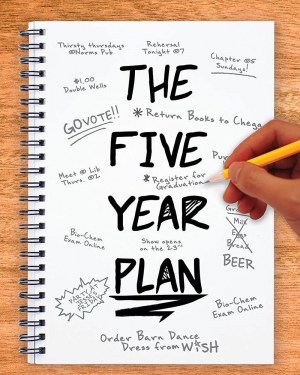 Thirsty Thursdays
@Norms Pub
Rehersal
Tonight @7
Chapter @5
Sundays!
$1.00
Double Wells
THE
GOVOTE!!
* Return Books to Chega
FIVE
Meet @ Lib
Thurs. @2
* Register for
Graduation
YEAR
Milk
Eggs
Bread
BEER
Bio-Chem
Exam Online
Show opens
on the 23rd
PLAN
Bio-Chem
Exam Online
Order Barn Dance
Dress from WiSH